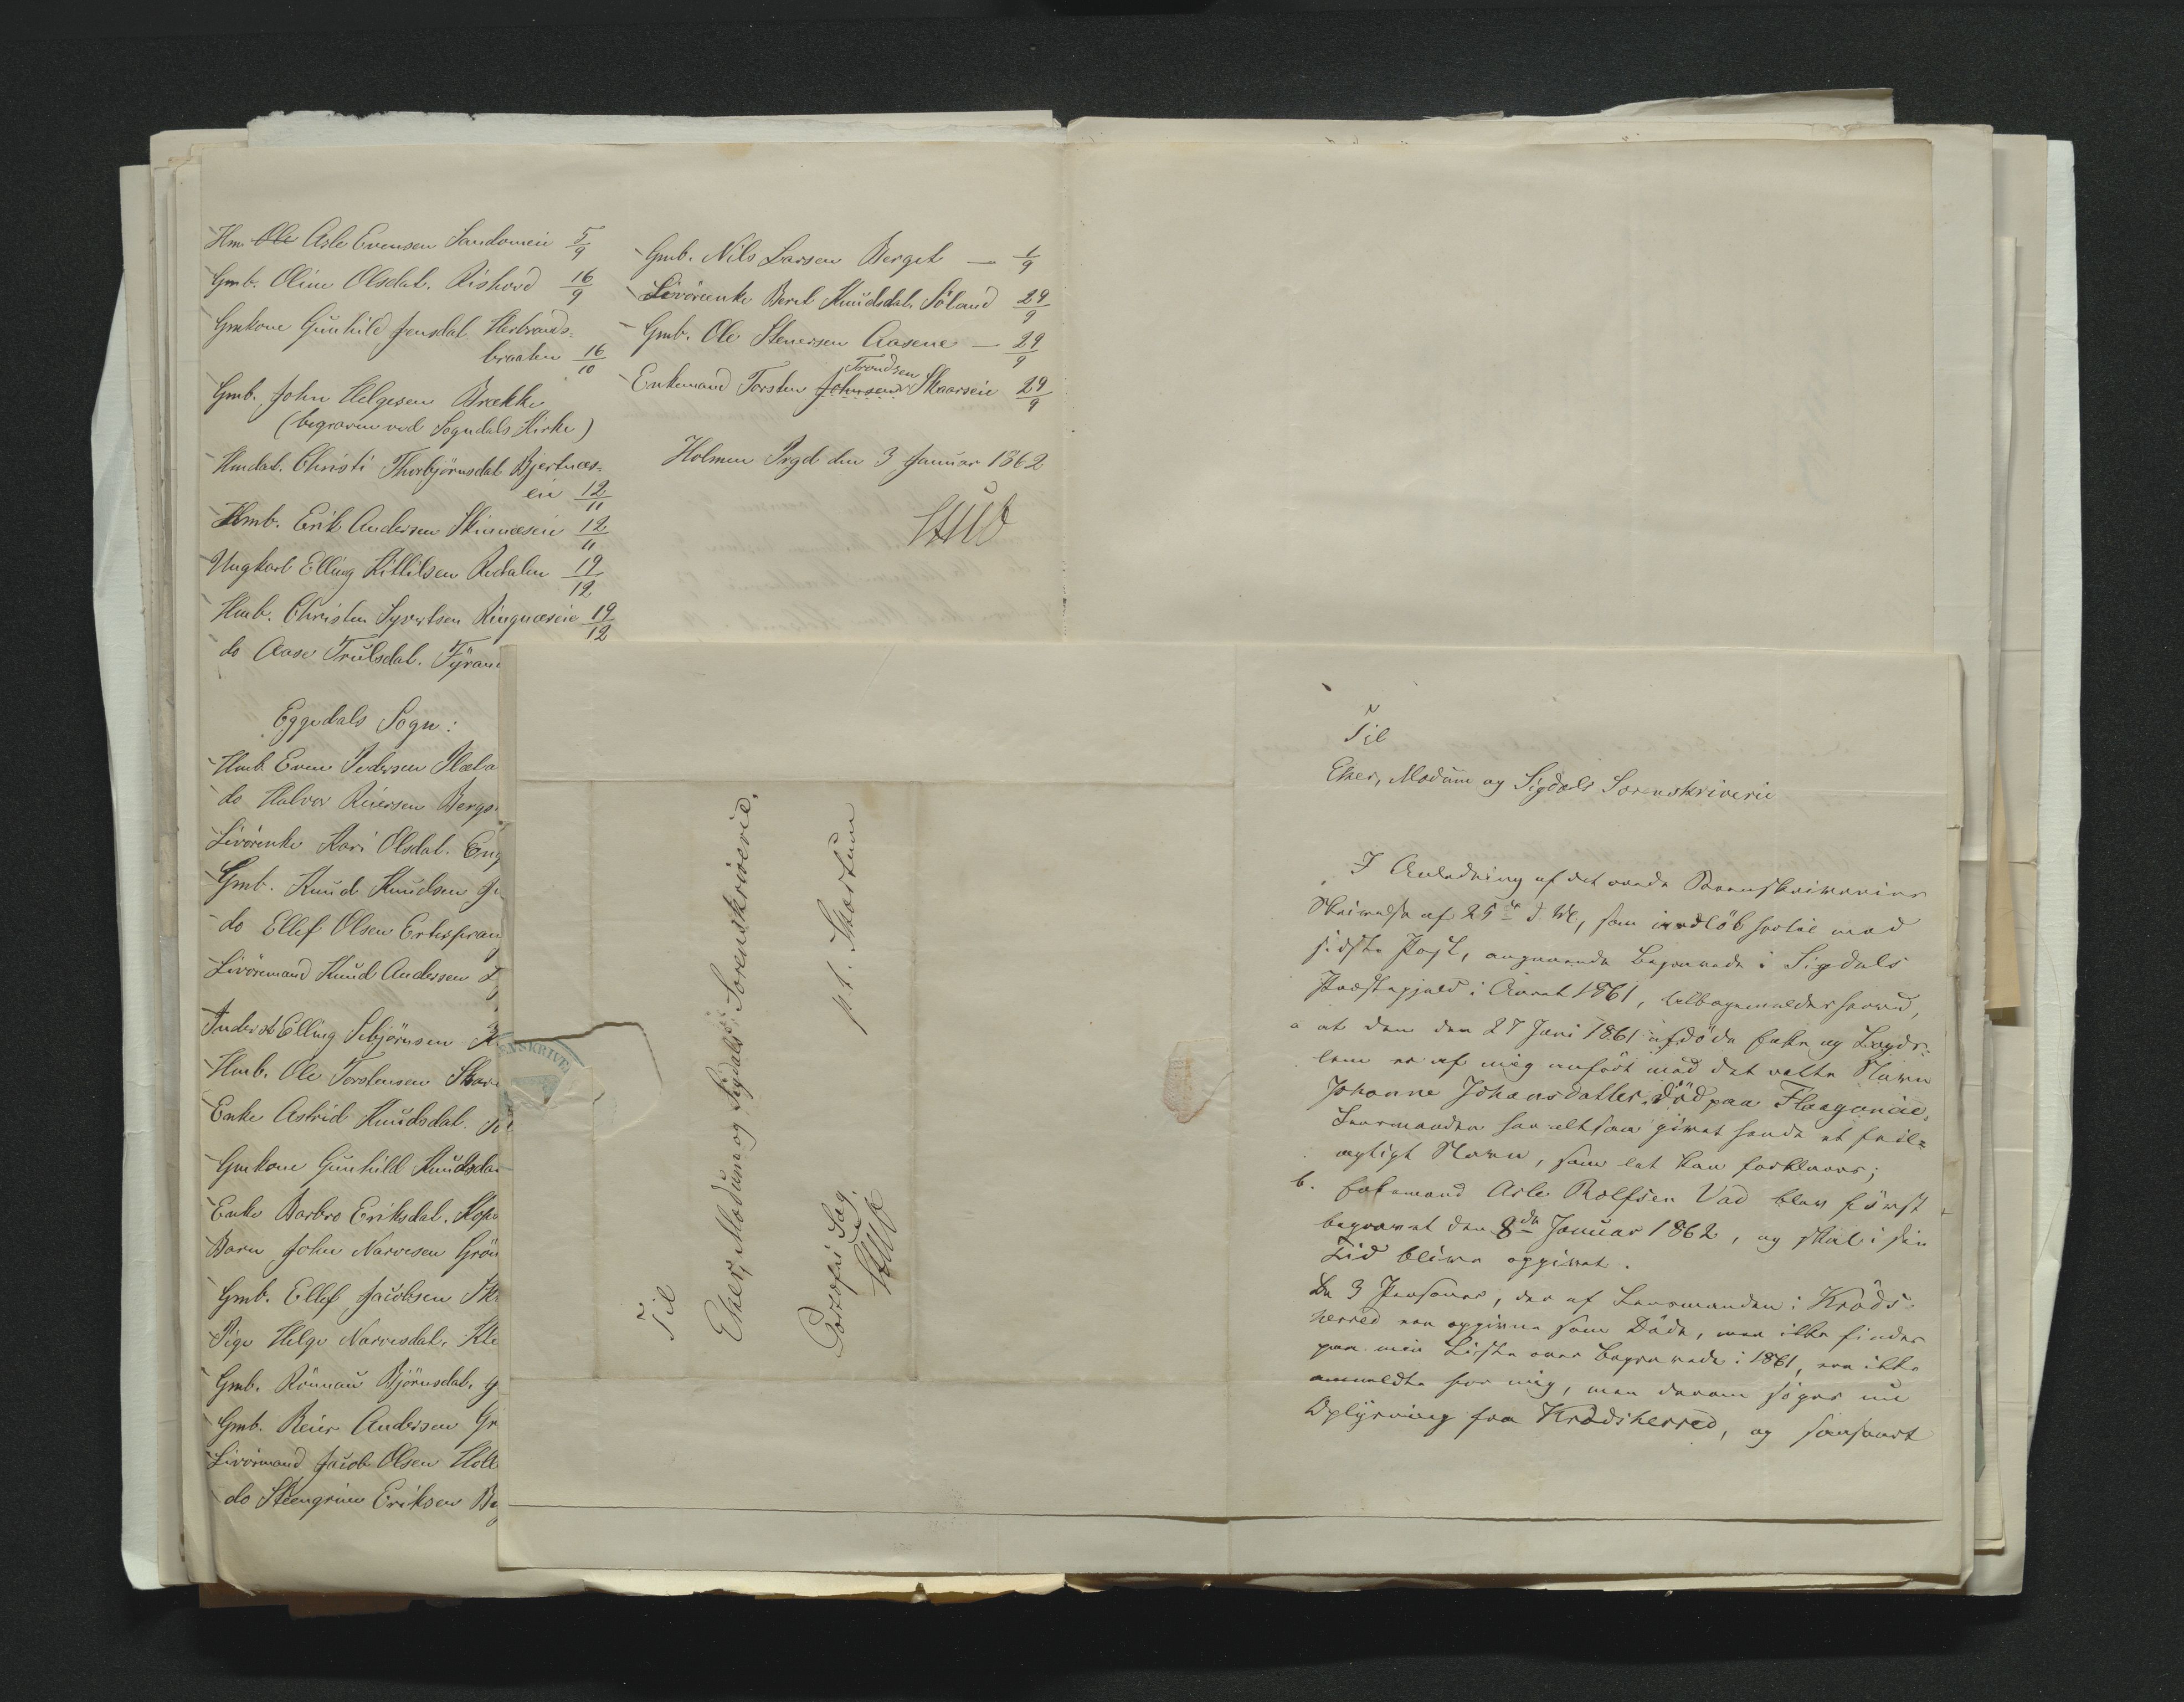 Hm. Ole Asle Evensen Sandomeie 5/9
Gmb. Oline Olsdat. Rishovd 16/9
Gmkone Gunhild Jensdat. Herbrands-
braaten 16/10
Gmb. John Helgesen Brække
(begraven ved Sognedals Kirke)
Hmdat. Christi Thorbjörnsdat. Bjertnæs-
eie 12/11
Hmb. Erik Andersen Skinnæseie 12/11
Ungkarl Elling Kittilsen Redalen 19/12
Hmb. Christen Syvertsen Ringnæseie 19/12
do Aase Trulsdat.
Eggedals Sogn:
Hmb. Even Pedersen
do Halvor Reiersen
Livörenke Kari Olsdat.
Gmb. Knud Knudsen
do Ellef Olsen
Livöremand Knud Andersen
Inderst Elling Sebjörnsen
Hmb. Ole Torstensen
Enke Astrid Knudsdat.
Gmkone Gunhild
Enke Barbro Eriksdat.
Barn John Narvesen
Gmb. Ellef Jacobsen
Pige Helge Narvesdat.
Gmb. Rönnau Björnsdat.
Gmb. Reier Andersen
Livörmand Jacob Olsen
do Steengrim Eriksen
Gmb. Nils Larsen Berget — 1/9
Livörenke Berit Knudsdat. Söland 29/9
Gmb. Ole Stenersen Aasene — 29/9
Trondsen
Enkemand Torsten Johnsen Skaarseie 29/9
Holmen Prgd den 3 Januar 1862
Til
Eker, Modum og Sigdals Sorenskriverie.
Portofri Sag.
Til
Eker, Modum og Sigdals Sorenskriverie
I Anledning af det ærede Sorenskriveries
Skrivelse af 25de d. M., som indlöb hertil med
sidste Post, angaaende Begravede i Sigdals
Præstegjeld i Aaret 1861, tilbagemeldes herved,
a at den den 27 Juni 1861 afdöde Enke og Lægds-
lem er af mig anfört med det rette Navn
Johanne Johansdatter, död paa Flaaganeie,
Lensmanden har altsaa givet hende et feil-
agtigt Navn, som let kan forklares;
b. Enkemand Asle Rolfsen Vad blev först
begravet den 8de Januar 1862, og skal i sin
Tid blive opgivet.
De 3 Personer, der af Lensmanden i Kröds-
herred ere opgivne som Döde, men ikke findes
paa min Liste over Begravede i 1861, ere ikke
anmeldte for mig, men derom söges nu
Oplysning fra Krödsherred, og saasnart